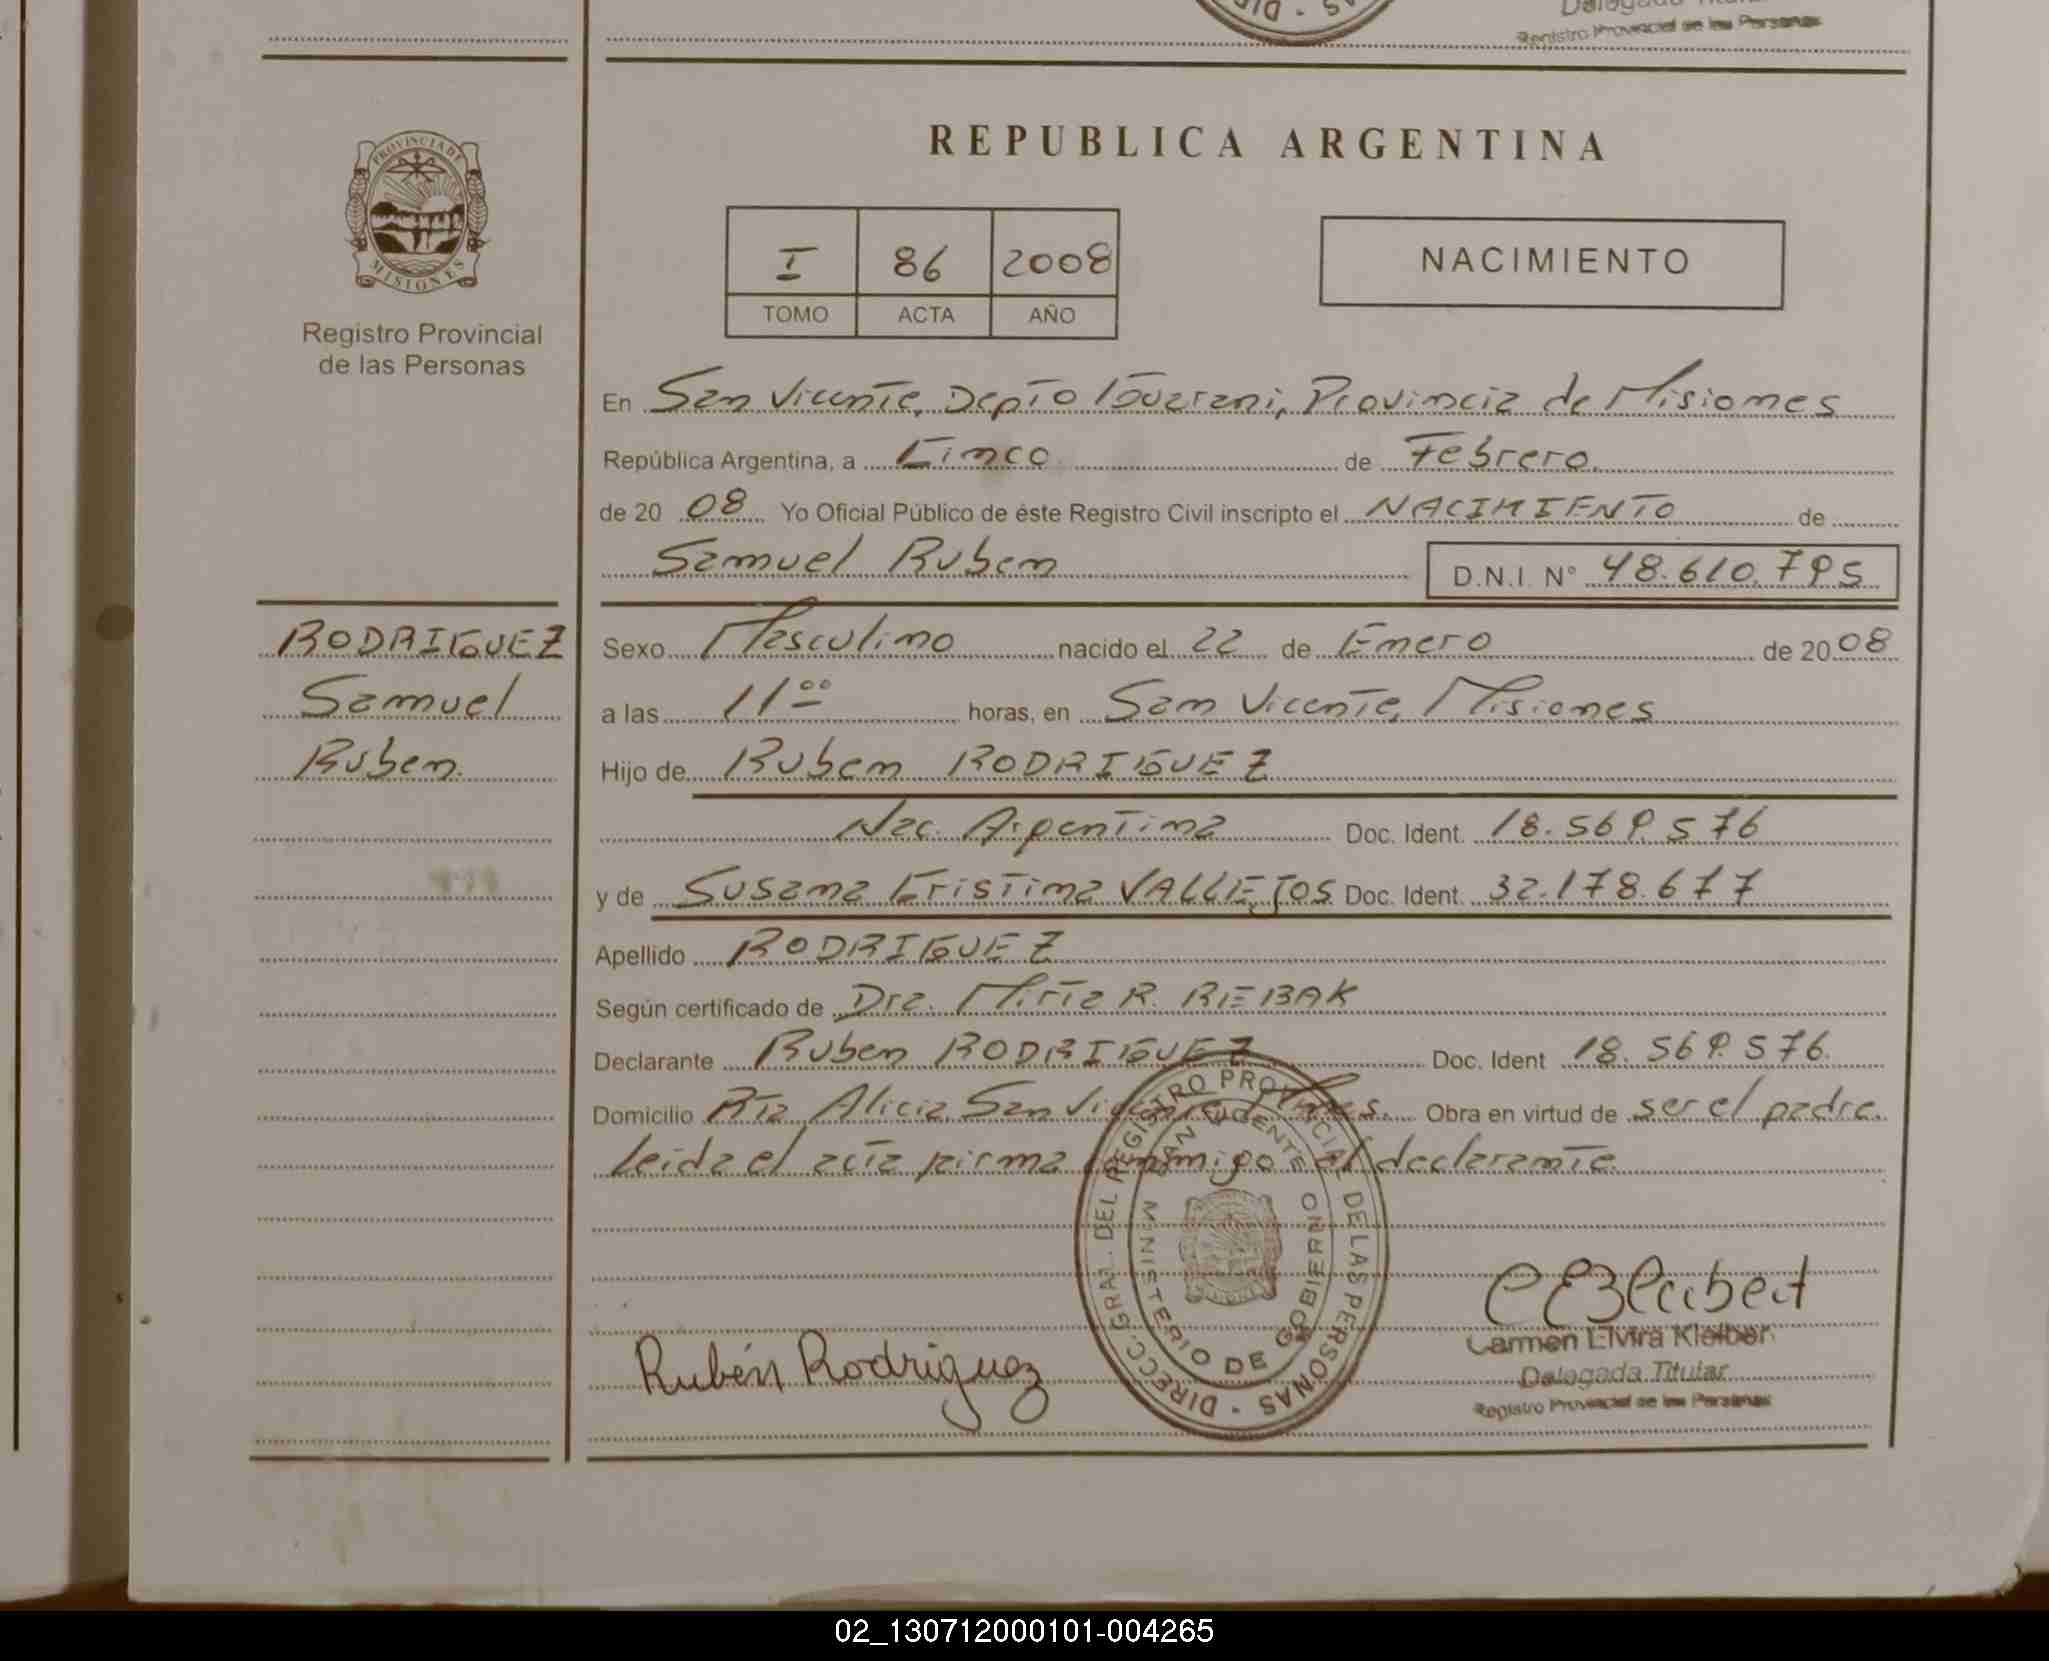 Delegada Titular
Registro Provincial de las Personas
PROVINCIA DE MISIONES
Registro Provincial
de las Personas
REPUBLICA ARGENTINA
I 86 2008
TOMO ACTA AÑO
NACIMIENTO
En San Vicente, Depto Guarani, Provincia de Misiones
República Argentina, a Cinco de Febrero
de 20 08 Yo Oficial Público de éste Registro Civil inscripto el NACIMIENTO de
Samuel Ruben D.N.I. N° 48.610.795
RODRIGUEZ
Samuel
Ruben
Sexo Masculino nacido el 22 de Enero de 20 08
a las 11 00 horas, en San Vicente, Misiones
Hijo de Ruben RODRIGUEZ
Nac. Argentina Doc. Ident. 18.569.576
y de Susana Cristina VALLEJOS Doc. Ident. 32.178.677
Apellido RODRIGUEZ
Según certificado de Dra. Mirta R. REBAK
Declarante Ruben RODRIGUEZ Doc. Ident 18.569.576
Domicilio Pta Alicia San Vicente Mnes. Obra en virtud de ser el padre.
Leida el acta firma conmigo el declarante
DIRECC. GRAL. DEL REGISTRO PROVINCIAL DE LAS PERSONAS -
SAN VICENTE
MINISTERIO DE GOBIERNO
Rubén Rodriguez
Carmen Elvira Kleiber
Delegada Titular
Registro Provincial de las Personas
02_130712000101-004265